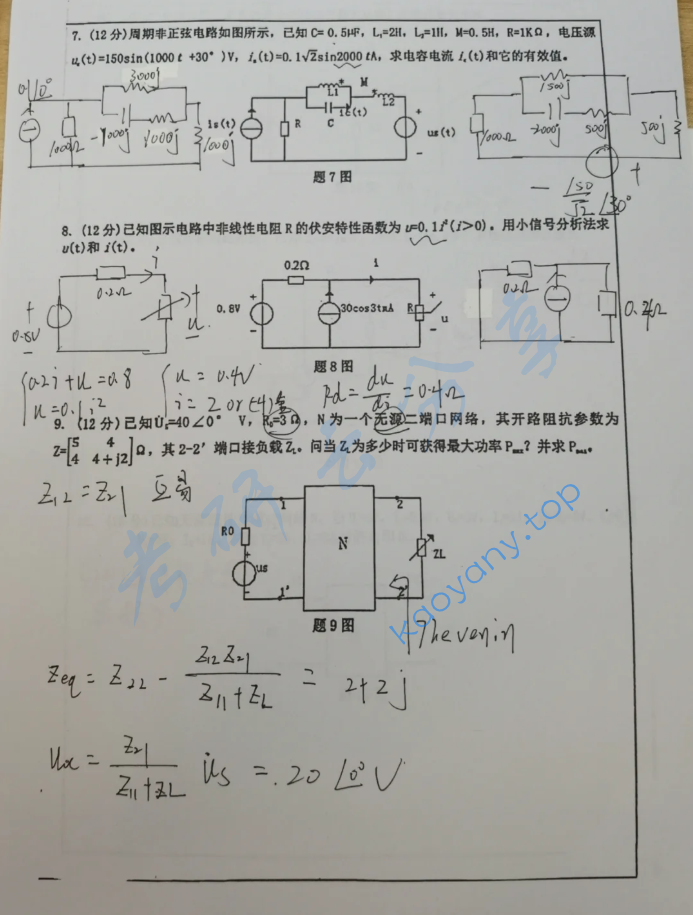 7. (12分)周期非正弦电路如图所示，已知C= 0.5μF，L₁=2H，L₂=1H，M=0.5H，R=1KΩ，电压源
uₛ(t)=150sin(1000t +30°)V，iₛ(t)=0.1√2sin2000tA，求电容电流i꜀(t)和它的有效值。
3000j
1000Ω
1000j
L1
M
L2
C
ic(t)
is(t)
R
us(t)
+
-
1500j
1000Ω
-2000j
500j
500j
- 150/√2 ∠30°
+
题7图
8. (12分)已知图示电路中非线性电阻R的伏安特性函数为u=0.1i²(i>0)。用小信号分析法求
u(t)和i(t)。
i
0.2Ω
+
0.8V
-
+
u
-
0.2Ω
i
+
0.8V
-
30cos3tmA
R
+
u
-
0.2Ω
题8图
{0.2i+u=0.8
u=0.1i²
{u=0.4V
i=2 or (-4)舍
Rd= du/di =0.4Ω
9. (12分)已知U̇ₛ=40∠0° V，R₀=3Ω，N为一个无源二端口网络，其开路阻抗参数为
Z=[5 4
4 4+j2]Ω，其2-2'端口接负载Z_L。问当Z_L为多少时可获得最大功率Pₘₐₓ？并求Pₘₐₓ。
Z₁₂=Z₂₁ 互易
1
2
R0
N
ZL
+
us
-
1'
2'
题9图
Thevenin
Zeq = Z₂₂ - Z₁₂Z₂₁/(Z₁₁+Z_L) = 2+2j
Uoc = Z₂₁/(Z₁₁+Z_L) U̇s = 20∠0° V
考研云分享
kaoyany.top